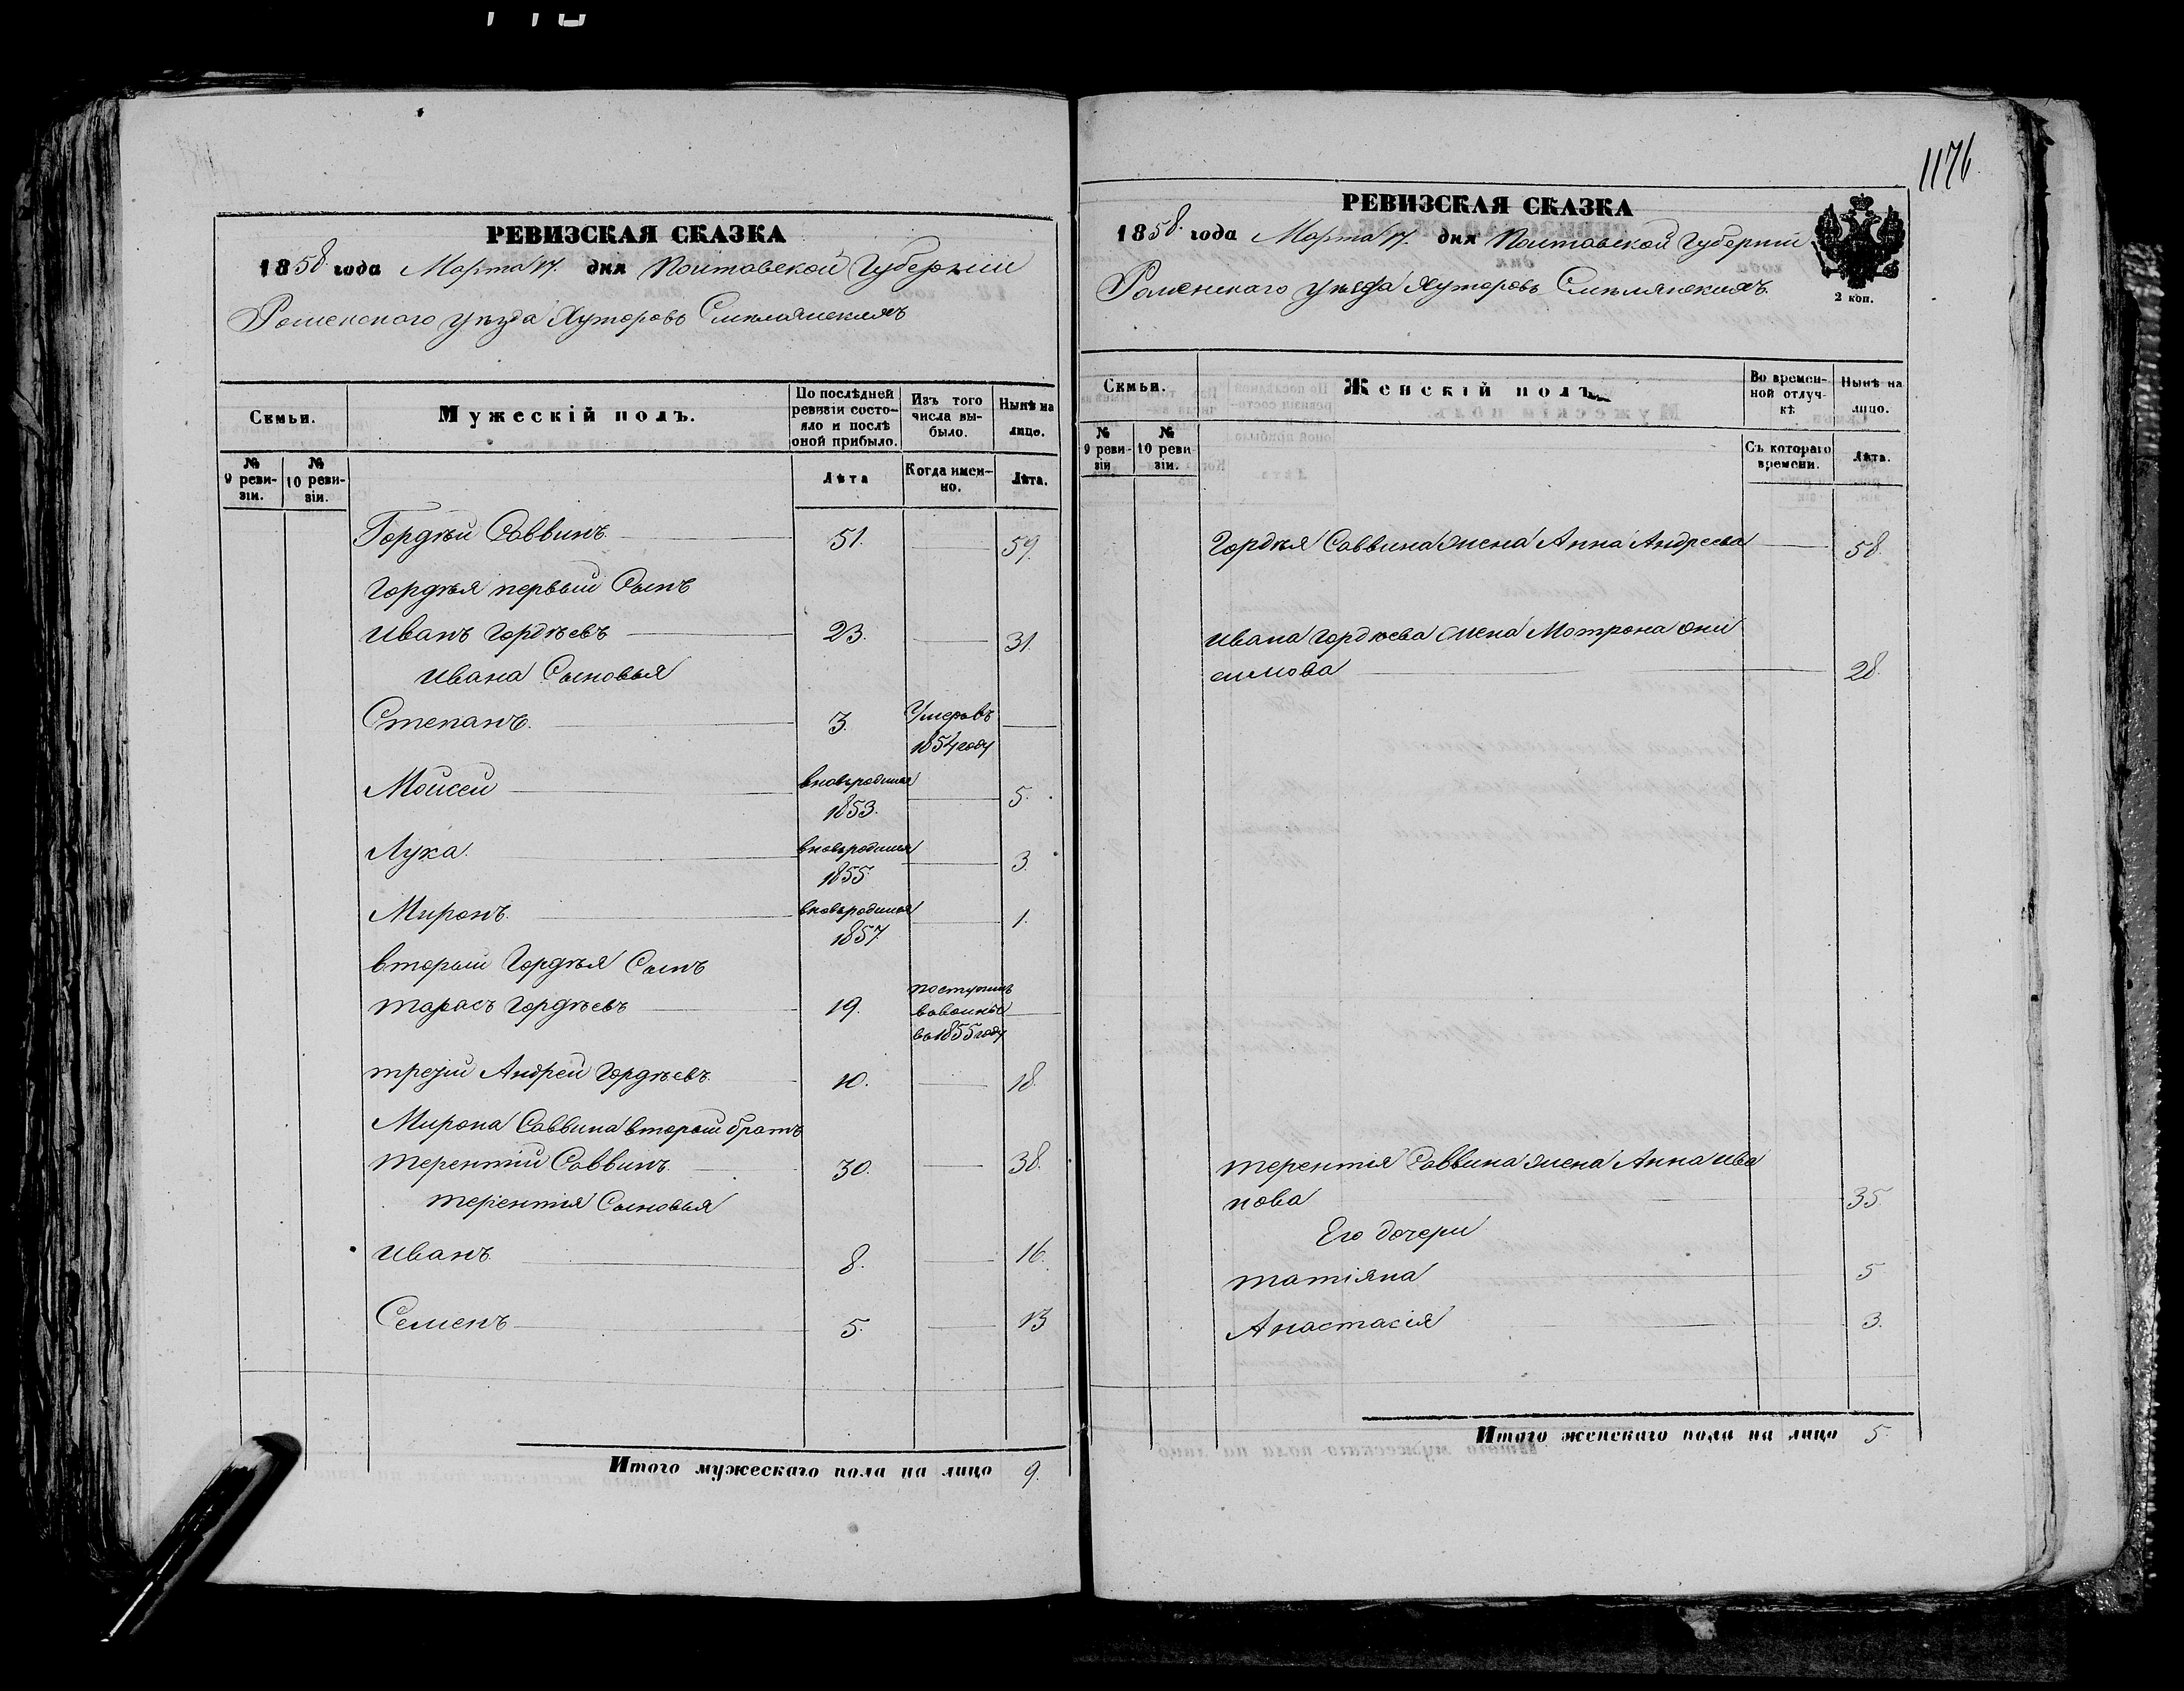 1176
РЕВИЗСКАЯ СКАЗКА
1858 года Марта 17. дня Полтавской Губерніи
Роменского уѣзда Хуторовъ Смѣлянскихъ
Семьи.
Мужескій полъ.
По послѣдней ревизіи состояло и послѣ оной прибыло.
Изъ того числа выбыло.
Нынѣ на лицо.
№ 9 ревизіи.
№ 10 ревизіи.
Лѣта
Когда именно.
Лѣта.
Гордѣй Саввинъ 51. 59.
Гордѣя первый Сынъ
Иванъ Гордѣевъ 23. 31.
Ивана Сыновья
Степанъ. 3. Умеръ въ
1854 году
Моисей вновьродился 5.
1853.
Лука. вновьродился 3.
1855
Миронъ. вновьродился 1.
1857
вторый Гордѣя Сынъ
Тарасъ Гордѣевъ 19. поступилъ
во 1855 году
третій Андрей Гордѣевъ. 10. 18.
Мирона Саввина вторый братъ
Терентій Саввинъ. 30. 38.
Терентія Сыновья
Иванъ 8. 16.
Семенъ 5. 13
Итого мужескаго пола на лицо 9.
РЕВИЗСКАЯ СКАЗКА
1858. года Марта 17. дня Полтавской Губерніи
Роменскаго уѣзда Хуторовъ Смѣлянскихъ
2 коп.
Семьи.
Женскій полъ.
Во временной отлучкѣ
Нынѣ на лицо.
№ 9 ревизіи
№ 10 ревизіи.
Съ котораго времени.
Лѣта.
Гордѣя Саввина жена Анна Андреева 58.
Ивана Гордѣева жена Мотрона Они
симова 28.
Терентія Саввина жена Анна Ива
нова 35.
Его дочери
Татіяна 5
Анастасія 3.
Итого женскаго пола на лицо 5